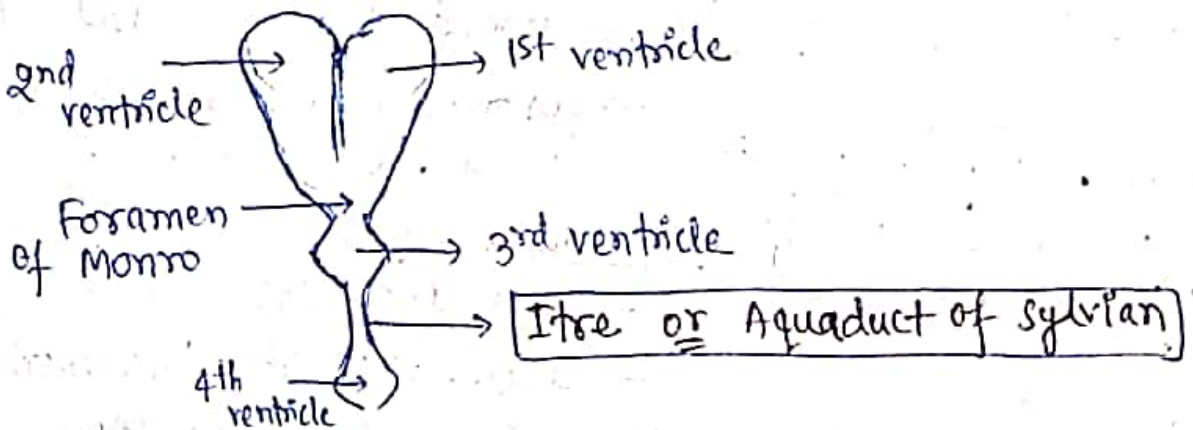 2nd
ventricle
1st ventricle
Foramen
of Monro
3rd ventricle
Itre or Aquaduct of sylvian
4th
ventricle